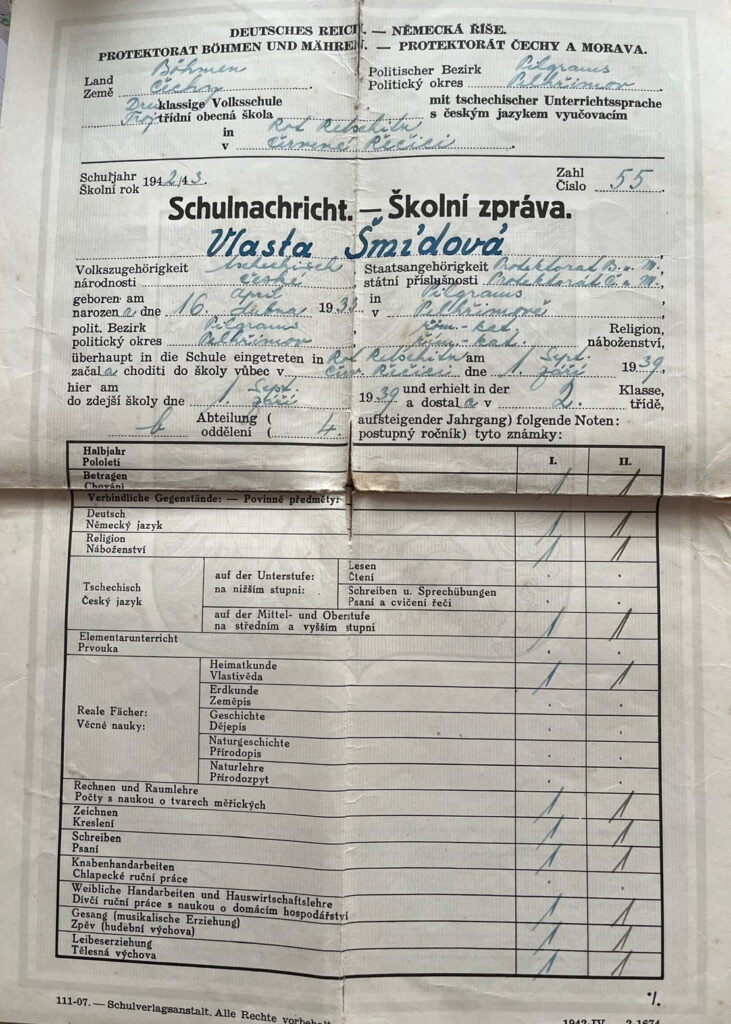 DEUTSCHES REICH. — NĚMECKÁ ŘÍŠE.
PROTEKTORAT BÖHMEN UND MÄHREN. — PROTEKTORÁT ČECHY A MORAVA.
Land Böhmen Politischer Bezirk Pilgrams
Země Čechy Politický okres Pelhřimov
Dreiklassige Volksschule mit tschechischer Unterrichtssprache
Trojtřídní obecná škola s českým jazykem vyučovacím
in Rot Retschitz
v Červené Řečici.
Schuljahr Zahl
Školní rok 1942/43. Číslo 55.
Schulnachricht. — Školní zpráva.
Vlasta Šmídová,
Volkszugehörigkeit tschechisch Staatsangehörigkeit Protektorat B. u. M.,
národnosti české státní příslušnosti Protektorát Č. a M.,
geboren am April in Pilgrams
narozena dne 16. dubna 1933 v Pelhřimově,
polit. Bezirk Pilgrams röm.-kat. Religion,
politický okres Pelhřimov řím.-kat. náboženství,
überhaupt in die Schule eingetreten in Rot Retschitz am 1. Sept.
začala choditi do školy vůbec v Červ. Řečici dne září 1939,
hier am 1. Sept. und erhielt in der Klasse,
do zdejší školy dne září 1939 a dostala v 2. třídě,
b Abteilung ( aufsteigender Jahrgang) folgende Noten:
oddělení ( 4. postupný ročník) tyto známky:
Halbjahr
Pololetí I. II.
Betragen
Chování 1 1
Verbindliche Gegenstände: — Povinné předměty:
Deutsch
Německý jazyk 1 1
Religion
Náboženství 1 1
Tschechisch
Český jazyk
auf der Unterstufe:
na nižším stupni:
Lesen
Čtení . .
Schreiben u. Sprechübungen
Psaní a cvičení řeči . .
auf der Mittel- und Oberstufe
na středním a vyšším stupni 1 1
Elementarunterricht
Prvouka . .
Reale Fächer:
Věcné nauky:
Heimatkunde
Vlastivěda 1 1
Erdkunde
Zeměpis . .
Geschichte
Dějepis . .
Naturgeschichte
Přírodopis . .
Naturlehre
Přírodozpyt . .
Rechnen und Raumlehre
Počty s naukou o tvarech měřických 1 1
Zeichnen
Kreslení 1 1
Schreiben
Psaní 1 1
Knabenhandarbeiten
Chlapecké ruční práce . .
Weibliche Handarbeiten und Hauswirtschaftslehre
Dívčí ruční práce s naukou o domácím hospodářství 1 1
Gesang (musikalische Erziehung)
Zpěv (hudební výchova) 1 1
Leibeserziehung
Tělesná výchova 1 1
./.
111-07. — Schulverlagsanstalt. Alle Rechte vorbehalt
1942-IV